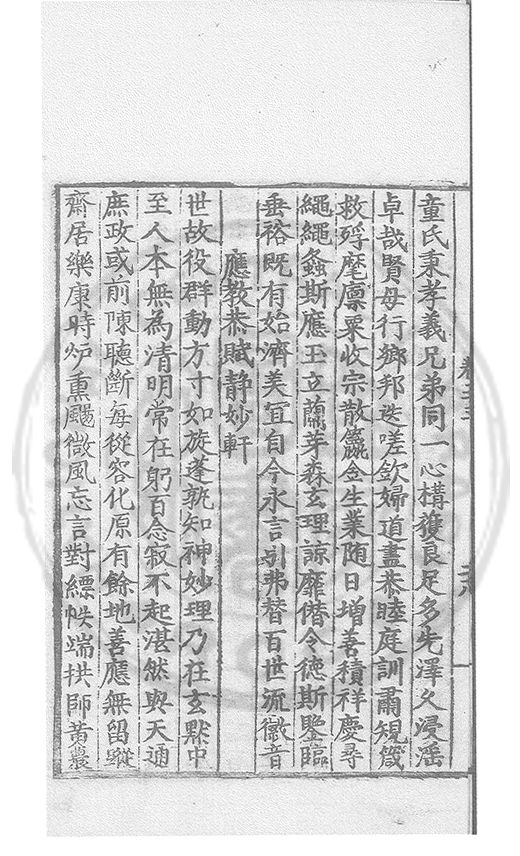 童氏秉孝義兄弟同一心構獲良足多先澤久浸滛
卓哉賢母行鄉邦迭嗟欽婦道盡恭睦庭訓肅規箴
救殍麾廪粟收宗散籯金生業随日增善積祥慶尋
繩繩螽斯應玉立蘭芽森玄理諒靡僣令德斯鑒臨
垂裕既有始濟美宜自今永言引弗替百世流徽音
應教恭賦静妙軒
世故役群動方寸如旋蓬孰知神妙理乃在玄默中
至人本無為清明常在躬百念寂不起湛然與天通
庶政或前陳聽斷每從容化原有餘地善應無留蹤
齋居樂康時炉熏颺微風忘言對縹帙端拱師黄農